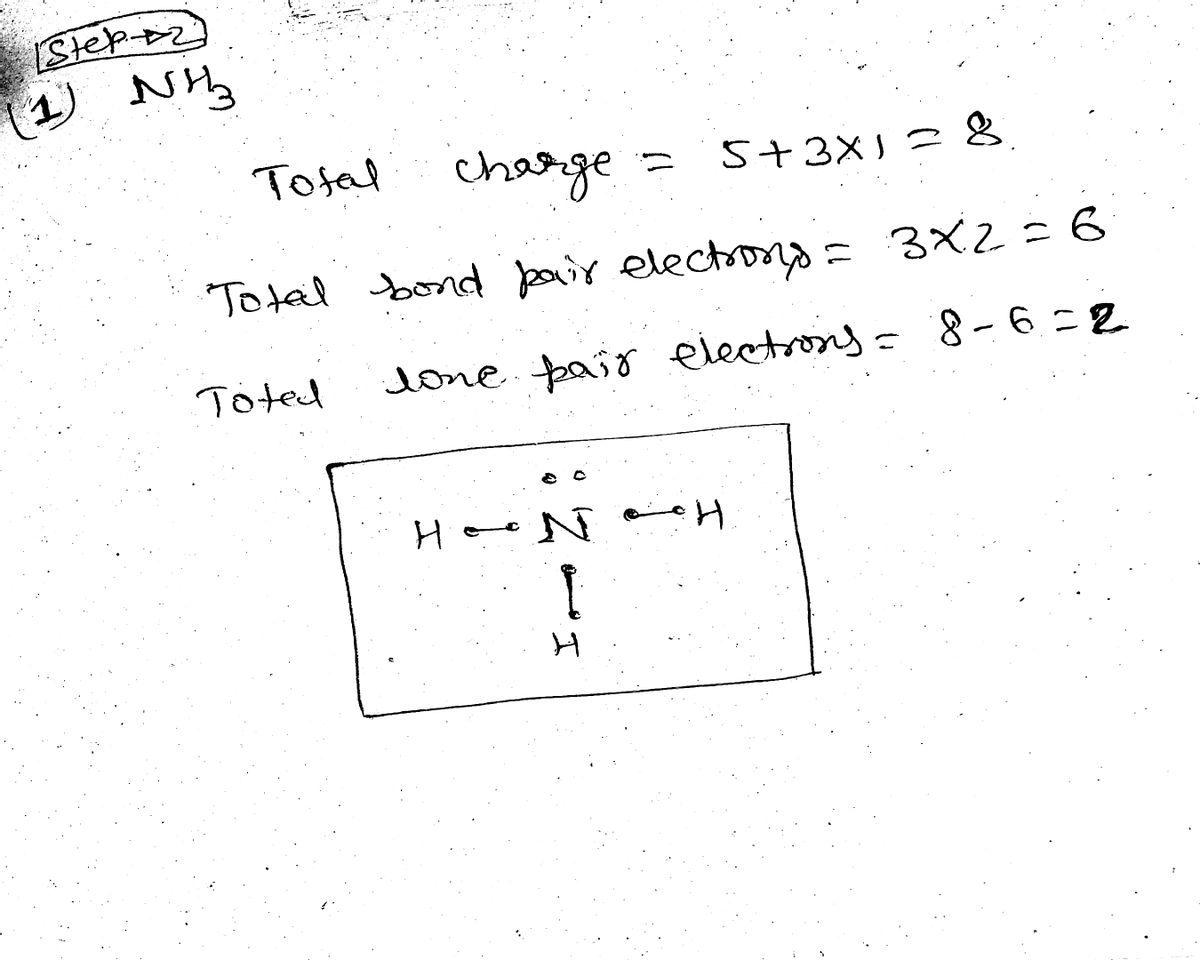 Step→2
(1) NH3
Total charge = 5+3×1 = 8.
Total bond pair electrons = 3×2 = 6
Total lone pair electrons = 8-6=2
··
H — N — H
|
H